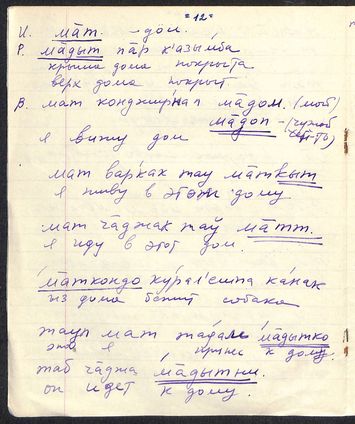 "12"
И. ма̄т. – дом.
Р. ма̄дыт па̄р к'азымба
крыша дома покрыта
верх дома покрыт
В. мат конджирнап ма̄дом. (мой)
ма̄доп – (чужой
я вижу дом
мат варк'ак тау ма̄ткыт
я живу в этом дому
мат ча̄джак таў ма̄тт.
я иду в этот дом.
ма̄ткондо кура̄л'ешпа канак
из дома бежит собака
мат ма̄дытко
я к дому.
таб ча̄джа ма̄дытни.
он идет к дому.